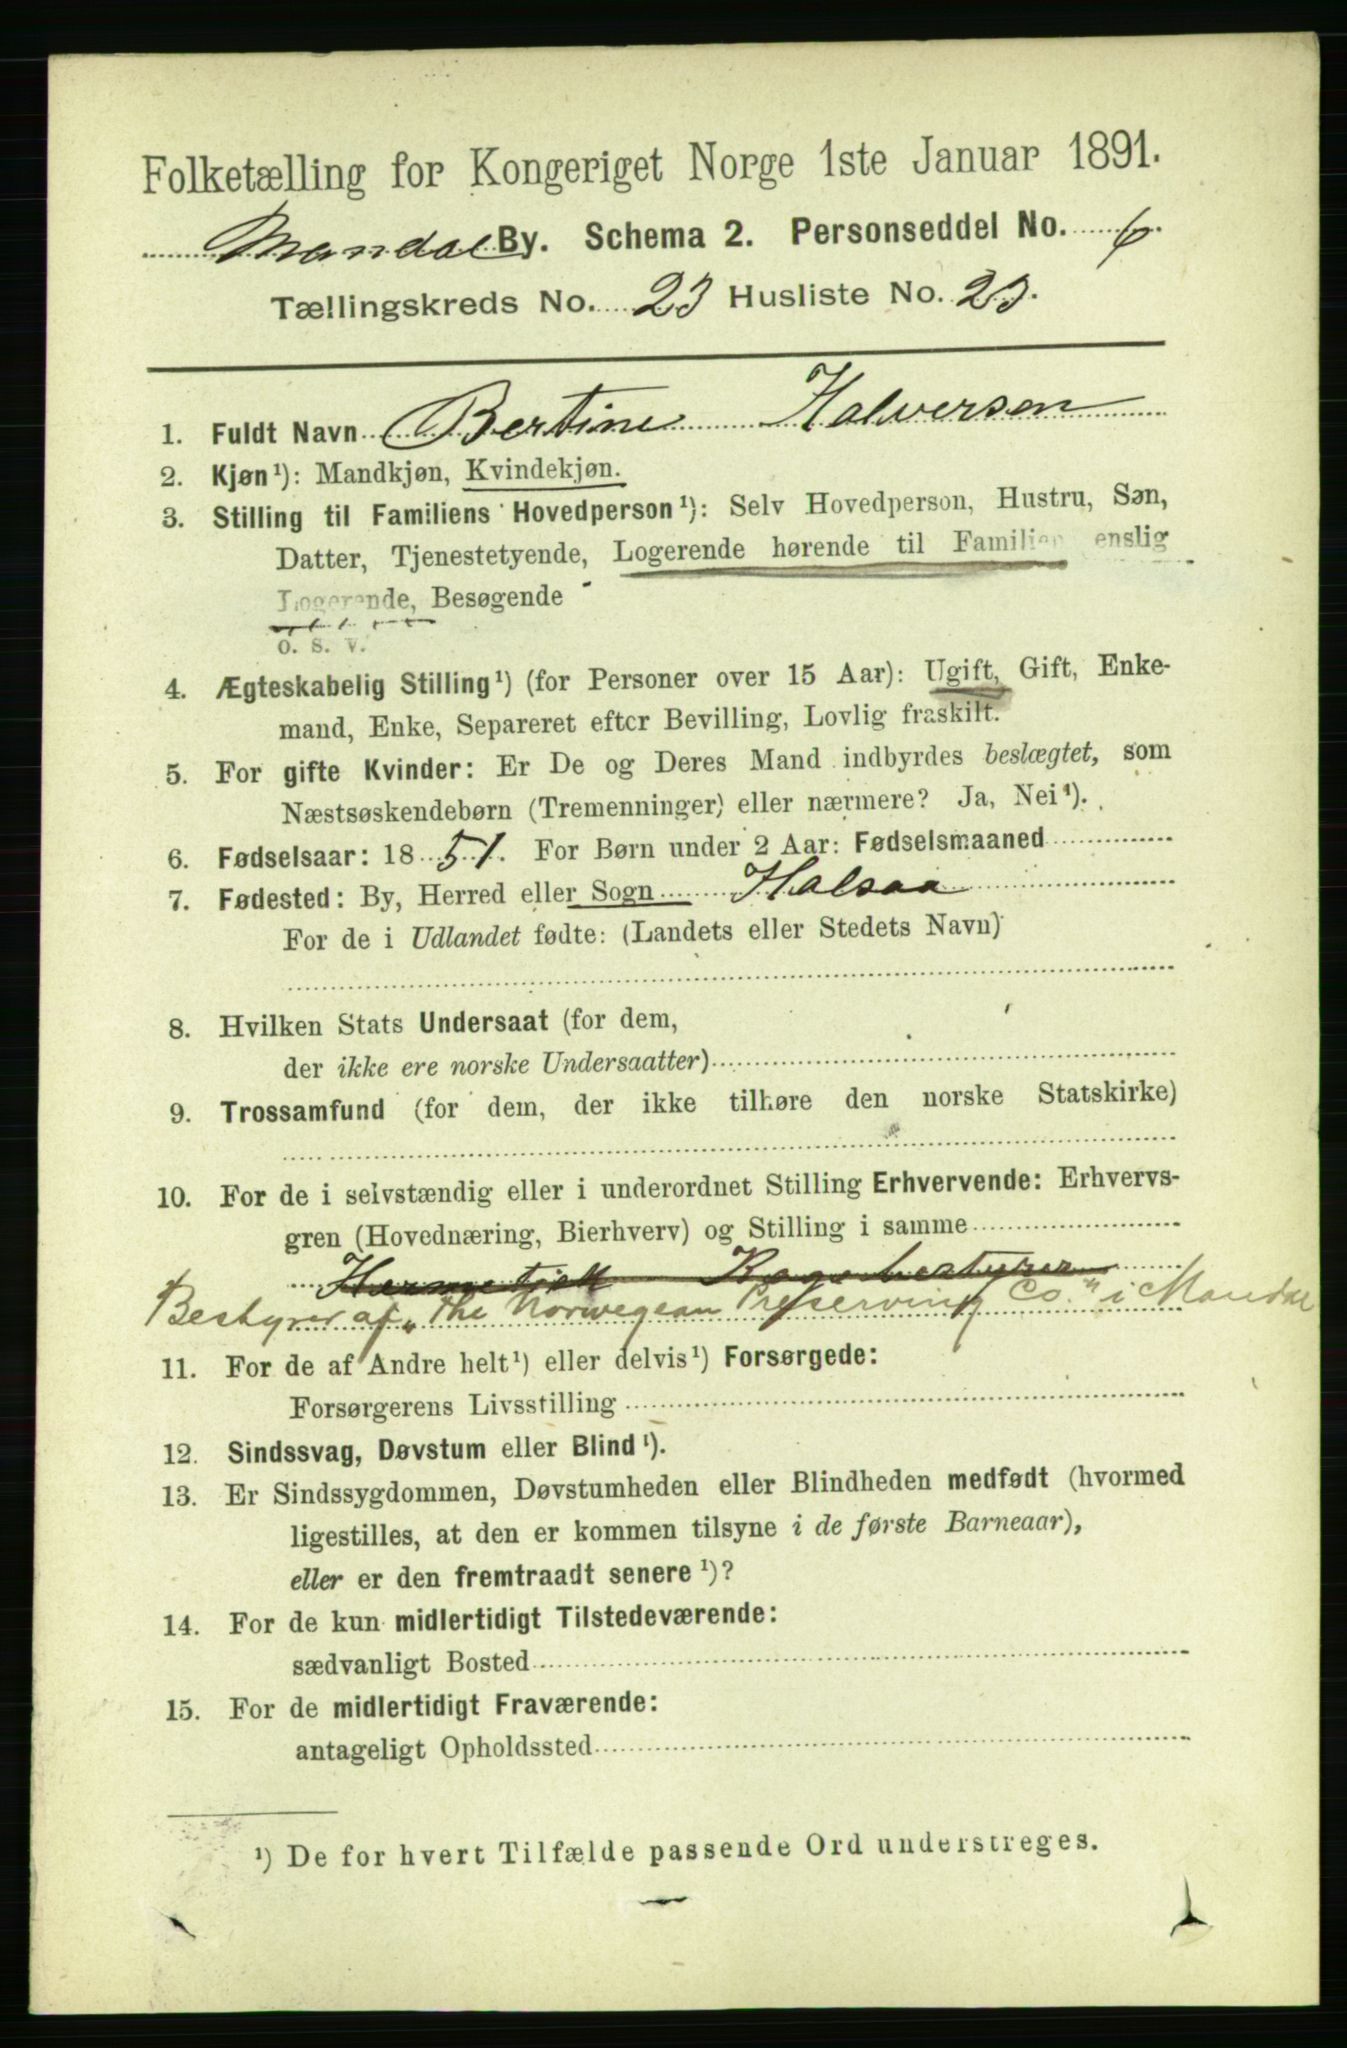 Folketælling for Kongeriget Norge 1ste Januar 1891.
Mandal By. Schema 2. Personseddel No. 6.
Tællingskreds No. 23 Husliste No. 23.
1. Fuldt Navn Bertine Halversen
2. Kjøn¹): Mandkjøn, Kvindekjøn.
3. Stilling til Familiens Hovedperson¹): Selv Hovedperson, Hustru, Søn,
Datter, Tjenestetyende, Logerende hørende til Familien enslig
Logerende, Besøgende
o. s. v.
4. Ægteskabelig Stilling¹) (for Personer over 15 Aar): Ugift, Gift, Enke-
mand, Enke, Separeret efter Bevilling, Lovlig fraskilt.
5. For gifte Kvinder: Er De og Deres Mand indbyrdes beslægtet, som
Næstsøskendebørn (Tremenninger) eller nærmere? Ja, Nei¹).
6. Fødselsaar: 1851. For Børn under 2 Aar: Fødselsmaaned
7. Fødested: By, Herred eller Sogn Halsaa
For de i Udlandet fødte: (Landets eller Stedets Navn)
8. Hvilken Stats Undersaat (for dem,
der ikke ere norske Undersaatter)
9. Trossamfund (for dem, der ikke tilhøre den norske Statskirke)
10. For de i selvstændig eller i underordnet Stilling Erhvervende: Erhvervs-
gren (Hovednæring, Bierhverv) og Stilling i samme
Bestyrer af "The Norwegean Preserving Co." i Mandal
11. For de af Andre helt¹) eller delvis¹) Forsørgede:
Forsørgerens Livsstilling
12. Sindssvag, Døvstum eller Blind¹).
13. Er Sindssygdommen, Døvstumheden eller Blindheden medfødt (hvormed
ligestilles, at den er kommen tilsyne i de første Barneaar),
eller er den fremtraadt senere¹)?
14. For de kun midlertidigt Tilstedeværende:
sædvanligt Bosted
15. For de midlertidigt Fraværende:
antageligt Opholdssted
¹) De for hvert Tilfælde passende Ord understreges.